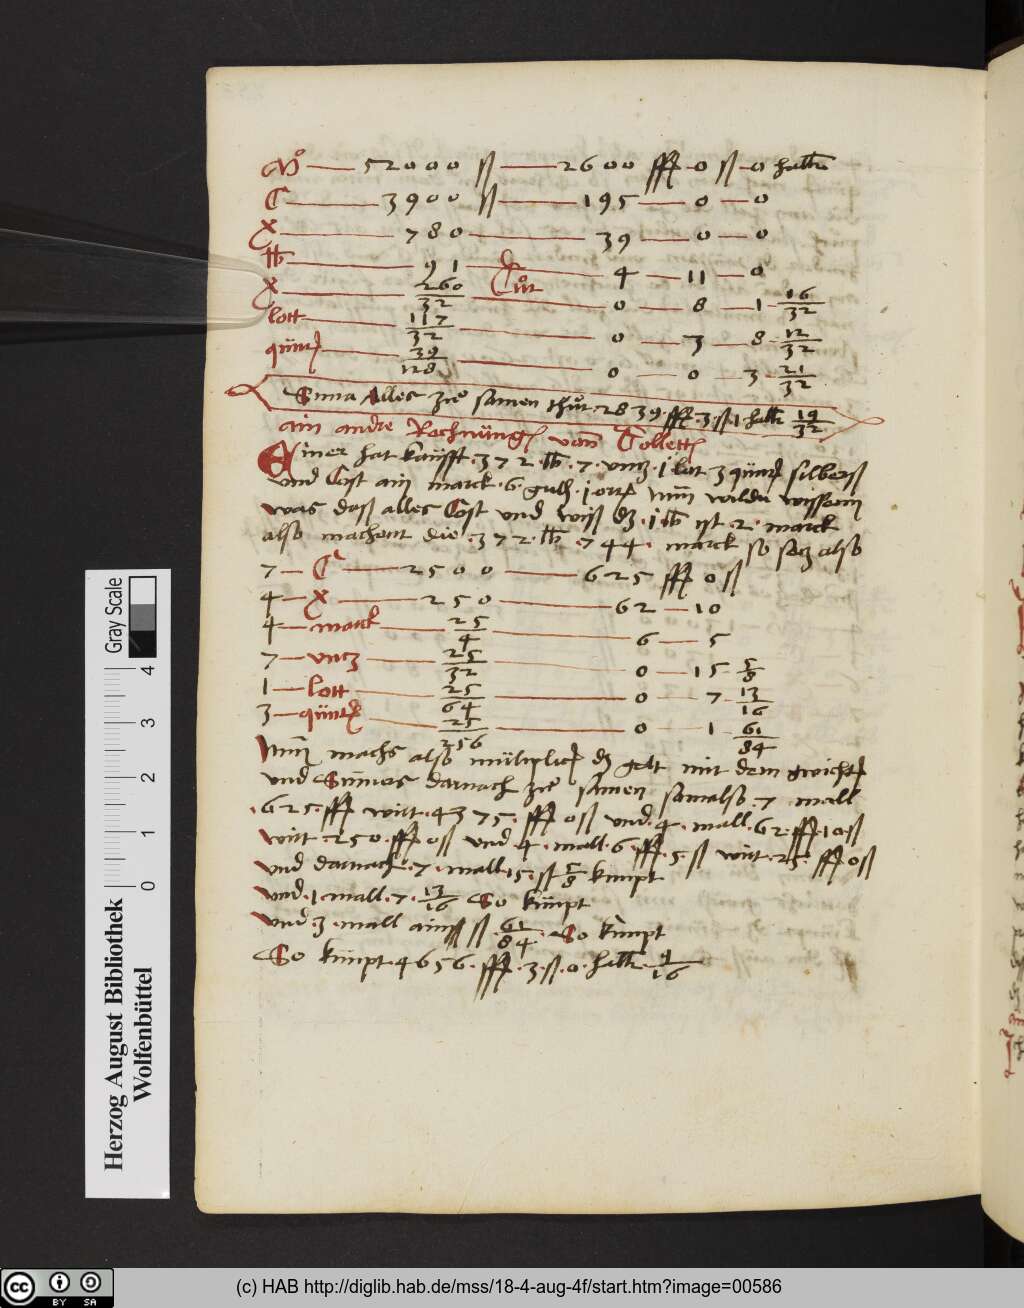 Mº — 52000 ß — 2600 fff — 0 ß — 0 hallr
C — 3900 ß — 195 — 0 — 0
X — 780 — 39 — 0 — 0
lb — 91 — 4 — 11 — 0
X — 260/32 — thůt — 0 — 8 — 1 16/32
lott — 117/32 — 0 — 3 — 8 12/32
quint — 39/128 — 0 — 0 — 3 21/32
Suma Alles zue samen thůt 2839 fff 3 ß 1 hallr 19/32
ain andre Rechnüng von Tollett
Einer hat kaufft 372 lb 7 untz 1 lot 3 quint silberß
und Cost ain marck 6 guld 1 ort Nun wildu wissenn
was daß alles Cost und wiß dz 1 lb ist 2 marck
also machent die 372 lb 744 marck so setz also
7 — C — 2500 — 625 fff 0 ß
4 — X — 250 — 62 — 10
4 — marck — 25/4 — 6 — 5
7 — untz — 25/32 — 0 — 15 5/8
1 — lott — 25/64 — 0 — 7 13/16
3 — quint — 25/256 — 0 — 1 61/84
Nun machs also multiplicir dz gelt mit dem gwicht
und Sumers darnach zue samen so mals 7 mall
625 fff wirt 4375 fff 0 ß und 4 mall 62 fff 10 ß
wirt 250 fff 0 ß und 4 mall 6 fff 5 ß wirt 25 fff 0 ß
und darnach 7 mall 15 ß 5/8 kumpt
und 1 mall 7 13/16 So kumpt
und 3 mall ainß ß 61/84 So kumpt
So kumpt 4656 fff 3 ß 0 hallr 9/16
Gray Scale
0 1 2 3 4
Herzog August Bibliothek
Wolfenbüttel
cc BY SA
(c) HAB http://diglib.hab.de/mss/18-4-aug-4f/start.htm?image=00586